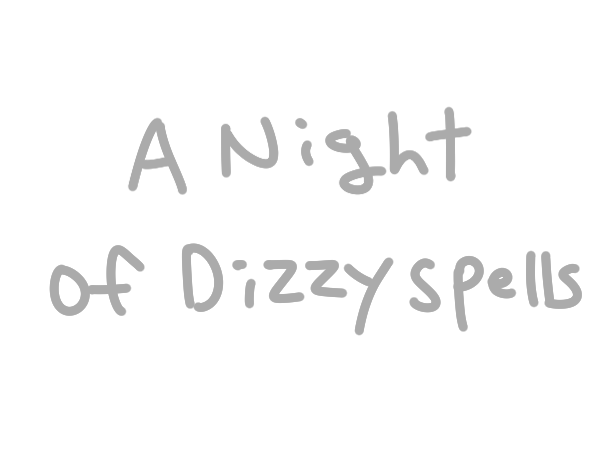 A Night
of Dizzy spells